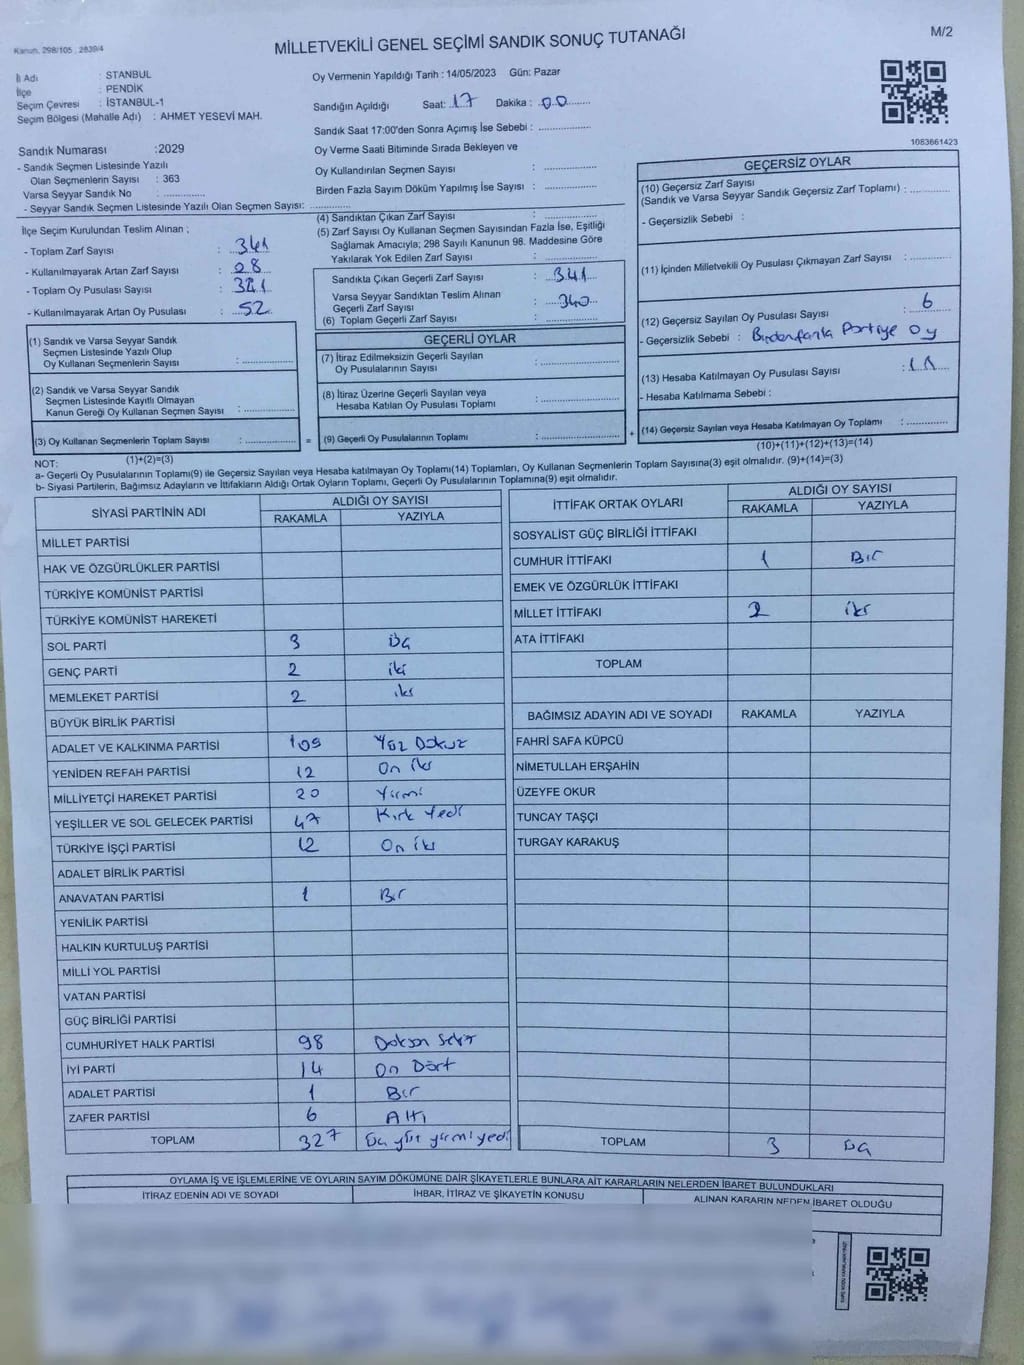 Kanun, 298/105 , 2839/4
MİLLETVEKİLİ GENEL SEÇİMİ SANDIK SONUÇ TUTANAĞI
M/2
İl Adı : STANBUL
İlçe : PENDİK
Seçim Çevresi : İSTANBUL-1
Seçim Bölgesi (Mahalle Adı) : AHMET YESEVİ MAH.
Sandık Numarası :2029
- Sandık Seçmen Listesinde Yazılı
Olan Seçmenlerin Sayısı : 363
Varsa Seyyar Sandık No :
- Seyyar Sandık Seçmen Listesinde Yazılı Olan Seçmen Sayısı:
Oy Vermenin Yapıldığı Tarih : 14/05/2023 Gün: Pazar
Sandığın Açıldığı Saat: 17 Dakika : 00
Sandık Saat 17:00'den Sonra Açımış İse Sebebi :
Oy Verme Saati Bitiminde Sırada Bekleyen ve
Oy Kullandırılan Seçmen Sayısı :
Birden Fazla Sayım Döküm Yapılmış İse Sayısı :
1083661423
İlçe Seçim Kurulundan Teslim Alınan ;
- Toplam Zarf Sayısı : 341
- Kullanılmayarak Artan Zarf Sayısı : 08
- Toplam Oy Pusulası Sayısı : 321
- Kullanılmayarak Artan Oy Pusulası : 52
(1) Sandık ve Varsa Seyyar Sandık
Seçmen Listesinde Yazılı Olup
Oy Kullanan Seçmenlerin Sayısı :
(2) Sandık ve Varsa Seyyar Sandık
Seçmen Listesinde Kayıtlı Olmayan
Kanun Gereği Oy Kullanan Seçmen Sayısı :
(3) Oy Kullanan Seçmenlerin Toplam Sayısı : =
(1)+(2)=(3)
(4) Sandıktan Çıkan Zarf Sayısı :
(5) Zarf Sayısı Oy Kullanan Seçmen Sayısından Fazla İse, Eşitliği
Sağlamak Amacıyla; 298 Sayılı Kanunun 98. Maddesine Göre
Yakılarak Yok Edilen Zarf Sayısı :
Sandıkta Çıkan Geçerli Zarf Sayısı : 341
Varsa Seyyar Sandıktan Teslim Alınan
Geçerli Zarf Sayısı : 340
(6) Toplam Geçerli Zarf Sayısı :
GEÇERLİ OYLAR
(7) İtiraz Edilmeksizin Geçerli Sayılan
Oy Pusulalarının Sayısı :
(8) İtiraz Üzerine Geçerli Sayılan veya
Hesaba Katılan Oy Pusulası Toplamı :
(9) Geçerli Oy Pusulalarının Toplamı : +
GEÇERSİZ OYLAR
(10) Geçersiz Zarf Sayısı
(Sandık ve Varsa Seyyar Sandık Geçersiz Zarf Toplamı) :
- Geçersizlik Sebebi :
(11) İçinden Milletvekili Oy Pusulası Çıkmayan Zarf Sayısı :
(12) Geçersiz Sayılan Oy Pusulası Sayısı : 6
- Geçersizlik Sebebi : Birdenfazla Partiye oy
(13) Hesaba Katılmayan Oy Pusulası Sayısı : 11
- Hesaba Katılmama Sebebi :
(14) Geçersiz Sayılan veya Hesaba Katılmayan Oy Toplamı :
(10)+(11)+(12)+(13)=(14)
NOT:
a- Geçerli Oy Pusulalarının Toplamı(9) ile Geçersiz Sayılan veya Hesaba katılmayan Oy Toplamı(14) Toplamları, Oy Kullanan Seçmenlerin Toplam Sayısına(3) eşit olmalıdır. (9)+(14)=(3)
b- Siyasi Partilerin, Bağımsız Adayların ve İttifakların Aldığı Ortak Oyların Toplamı, Geçerli Oy Pusulalarının Toplamına(9) eşit olmalıdır.
SİYASİ PARTİNİN ADI ALDIĞI OY SAYISI
RAKAMLA YAZIYLA
MİLLET PARTİSİ
HAK VE ÖZGÜRLÜKLER PARTİSİ
TÜRKİYE KOMÜNİST PARTİSİ
TÜRKİYE KOMÜNİST HAREKETİ
SOL PARTİ 3 üç
GENÇ PARTİ 2 iki
MEMLEKET PARTİSİ 2 iki
BÜYÜK BİRLİK PARTİSİ
ADALET VE KALKINMA PARTİSİ 109 Yüz Dokuz
YENİDEN REFAH PARTİSİ 12 On iki
MİLLİYETÇİ HAREKET PARTİSİ 20 Yirmi
YEŞİLLER VE SOL GELECEK PARTİSİ 47 Kırk Yedi
TÜRKİYE İŞÇİ PARTİSİ 12 On iki
ADALET BİRLİK PARTİSİ
ANAVATAN PARTİSİ 1 Bir
YENİLİK PARTİSİ
HALKIN KURTULUŞ PARTİSİ
MİLLİ YOL PARTİSİ
VATAN PARTİSİ
GÜÇ BİRLİĞİ PARTİSİ
CUMHURİYET HALK PARTİSİ 98 Doksan Sekiz
İYİ PARTİ 14 On Dört
ADALET PARTİSİ 1 Bir
ZAFER PARTİSİ 6 Altı
TOPLAM 327 Üç yüz yirmi yedi
İTTİFAK ORTAK OYLARI ALDIĞI OY SAYISI
RAKAMLA YAZIYLA
SOSYALİST GÜÇ BİRLİĞİ İTTİFAKI
CUMHUR İTTİFAKI 1 Bir
EMEK VE ÖZGÜRLÜK İTTİFAKI
MİLLET İTTİFAKI 2 iki
ATA İTTİFAKI
TOPLAM
BAĞIMSIZ ADAYIN ADI VE SOYADI RAKAMLA YAZIYLA
FAHRİ SAFA KÜPCÜ
NİMETULLAH ERŞAHİN
ÜZEYFE OKUR
TUNCAY TAŞÇI
TURGAY KARAKUŞ
TOPLAM 3 üç
OYLAMA İŞ VE İŞLEMLERİNE VE OYLARIN SAYIM DÖKÜMÜNE DAİR ŞİKAYETLERLE BUNLARA AİT KARARLARIN NELERDEN İBARET BULUNDUKLARI
İTİRAZ EDENİN ADI VE SOYADI İHBAR, İTİRAZ VE ŞİKAYETİN KONUSU ALINAN KARARIN NEDEN İBARET OLDUĞU